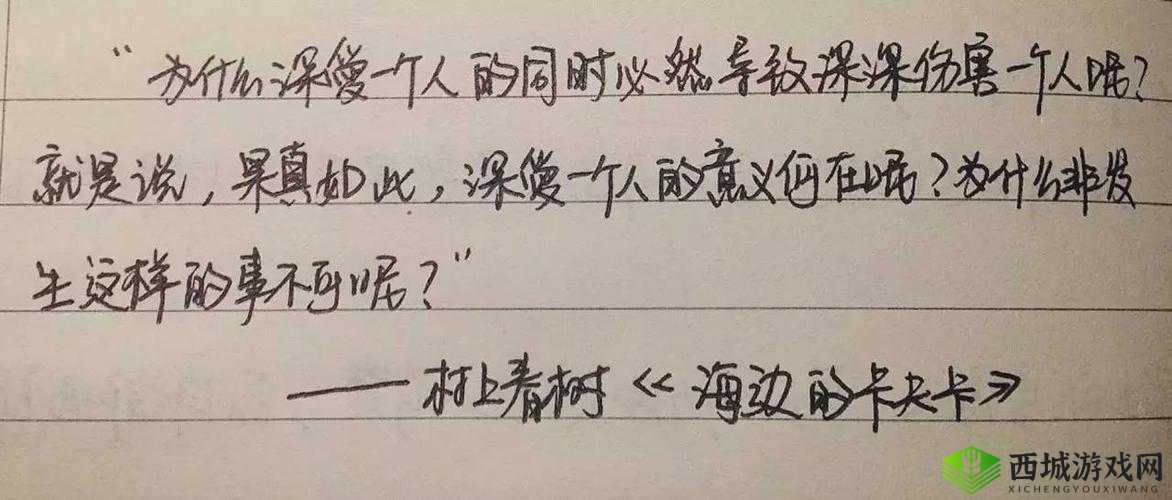 “为什么深愛一个人的同时必然导致深深伤害一个人呢？
就是说，果真如此，深愛一个人的意义何在呢？为什么非发
生这样的事不可呢？”
——村上春树《海边的卡夫卡》
西城游戏网
XICHENGYOUXIWANG